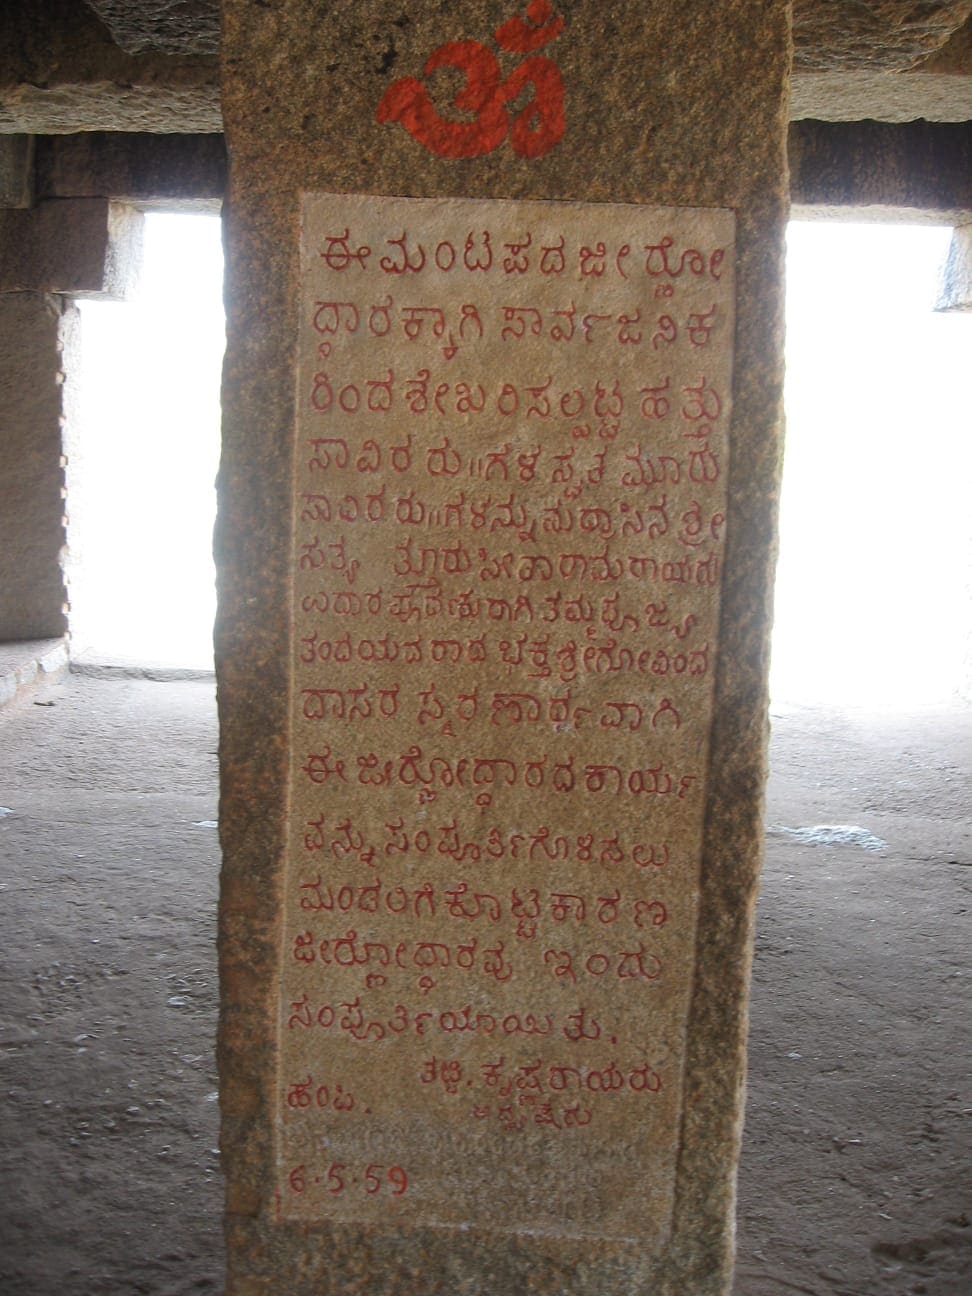 ॐ
ಈ ಮಂಟಪದ ಜೀರ್ಣೋ
ದ್ಧಾರಕ್ಕಾಗಿ ಸಾರ್ವಜನಿಕ
ರಿಂದ ಶೇಖರಿಸಲ್ಪಟ್ಟ ಹತ್ತು
ಸಾವಿರ ರು॥ಗಳ ಸ್ವತ ಮೂರು
ಸಾವಿರ ರು॥ಗಳನ್ನು ಶ್ರೀ
ಸತ್ಯ ತ್ತೂರು ಸೀತಾರಾಮರಾಯರು
ತಮ್ಮ ಪೂಜ್ಯ
ತಂದೆಯವರಾದ ಭಕ್ತ ಶ್ರೀಗೋವಿಂದ
ದಾಸರ ಸ್ಮರಣಾರ್ಥವಾಗಿ
ಈ ಜೀರ್ಣೋದ್ಧಾರದ ಕಾರ್ಯ
ವನ್ನು ಸಂಪೂರ್ತಿಗೊಳಿಸಲು
ಮಂಡಲಿಗೆ ಕೊಟ್ಟ ಕಾರಣ
ಜೀರ್ಣೋದ್ಧಾರವು ಇಂದು
ಸಂಪೂರ್ತಿಯಾಯಿತು.
ತಟ್ಟಿ. ಕೃಷ್ಣರಾಯರು
ಹಂಪಿ. ಅಧ್ಯಕ್ಷರು
6.5.59